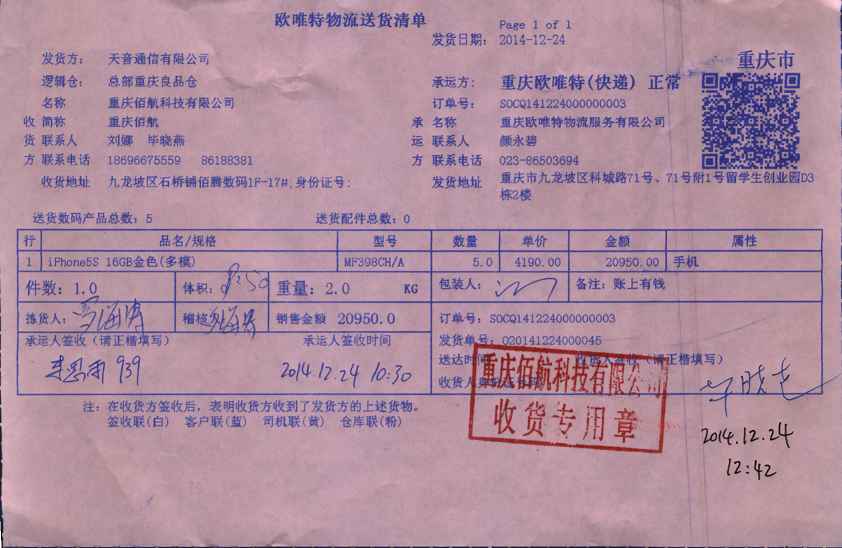 欧唯特物流送货清单
Page 1 of 1
发货日期: 2014-12-24
重庆市
发货方: 天音通信有限公司
逻辑仓: 总部重庆良品仓
承运方: 重庆欧唯特(快递) 正常
订单号: SOCQ141224000000003
收货方
名称 重庆佰航科技有限公司
简称 重庆佰航
联系人 刘娜 毕晓燕
联系电话 18696675559 86188381
收货地址 九龙坡区石桥铺佰腾数码1F-17#,身份证号:
承运方
名称 重庆欧唯特物流服务有限公司
联系人 颜永碧
联系电话 023-86503694
发货地址 重庆市九龙坡区科城路71号、71号附1号留学生创业园D3栋2楼
送货数码产品总数: 5 送货配件总数: 0
行 品名/规格 型号 数量 单价 金额 属性
1 iPhone5S 16GB金色(多模) MF398CH/A 5.0 4190.00 20950.00 手机
件数: 1.0 体积: 重量: 2.0 KG 包装人: 备注: 账上有钱
拣货人: 稽核 销售金额 20950.0 订单号: SOCQ141224000000003
发货单号: 020141224000045
承运人签收 (请正楷填写) 承运人签收时间
送达时间 收货人签收 (请正楷填写)
939 2014.12.24 10:30
收货人
重庆佰航科技有限公司
收货专用章
2014.12.24
12:42
注: 在收货方签收后, 表明收货方收到了发货方的上述货物。
签收联(白) 客户联(蓝) 司机联(黄) 仓库联(粉)